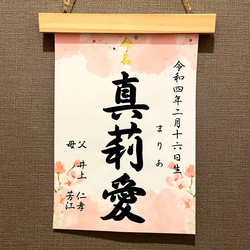 命名
令和四年二月十六日生
まりあ
真莉愛
父 井上 仁孝
母 〃 芳江